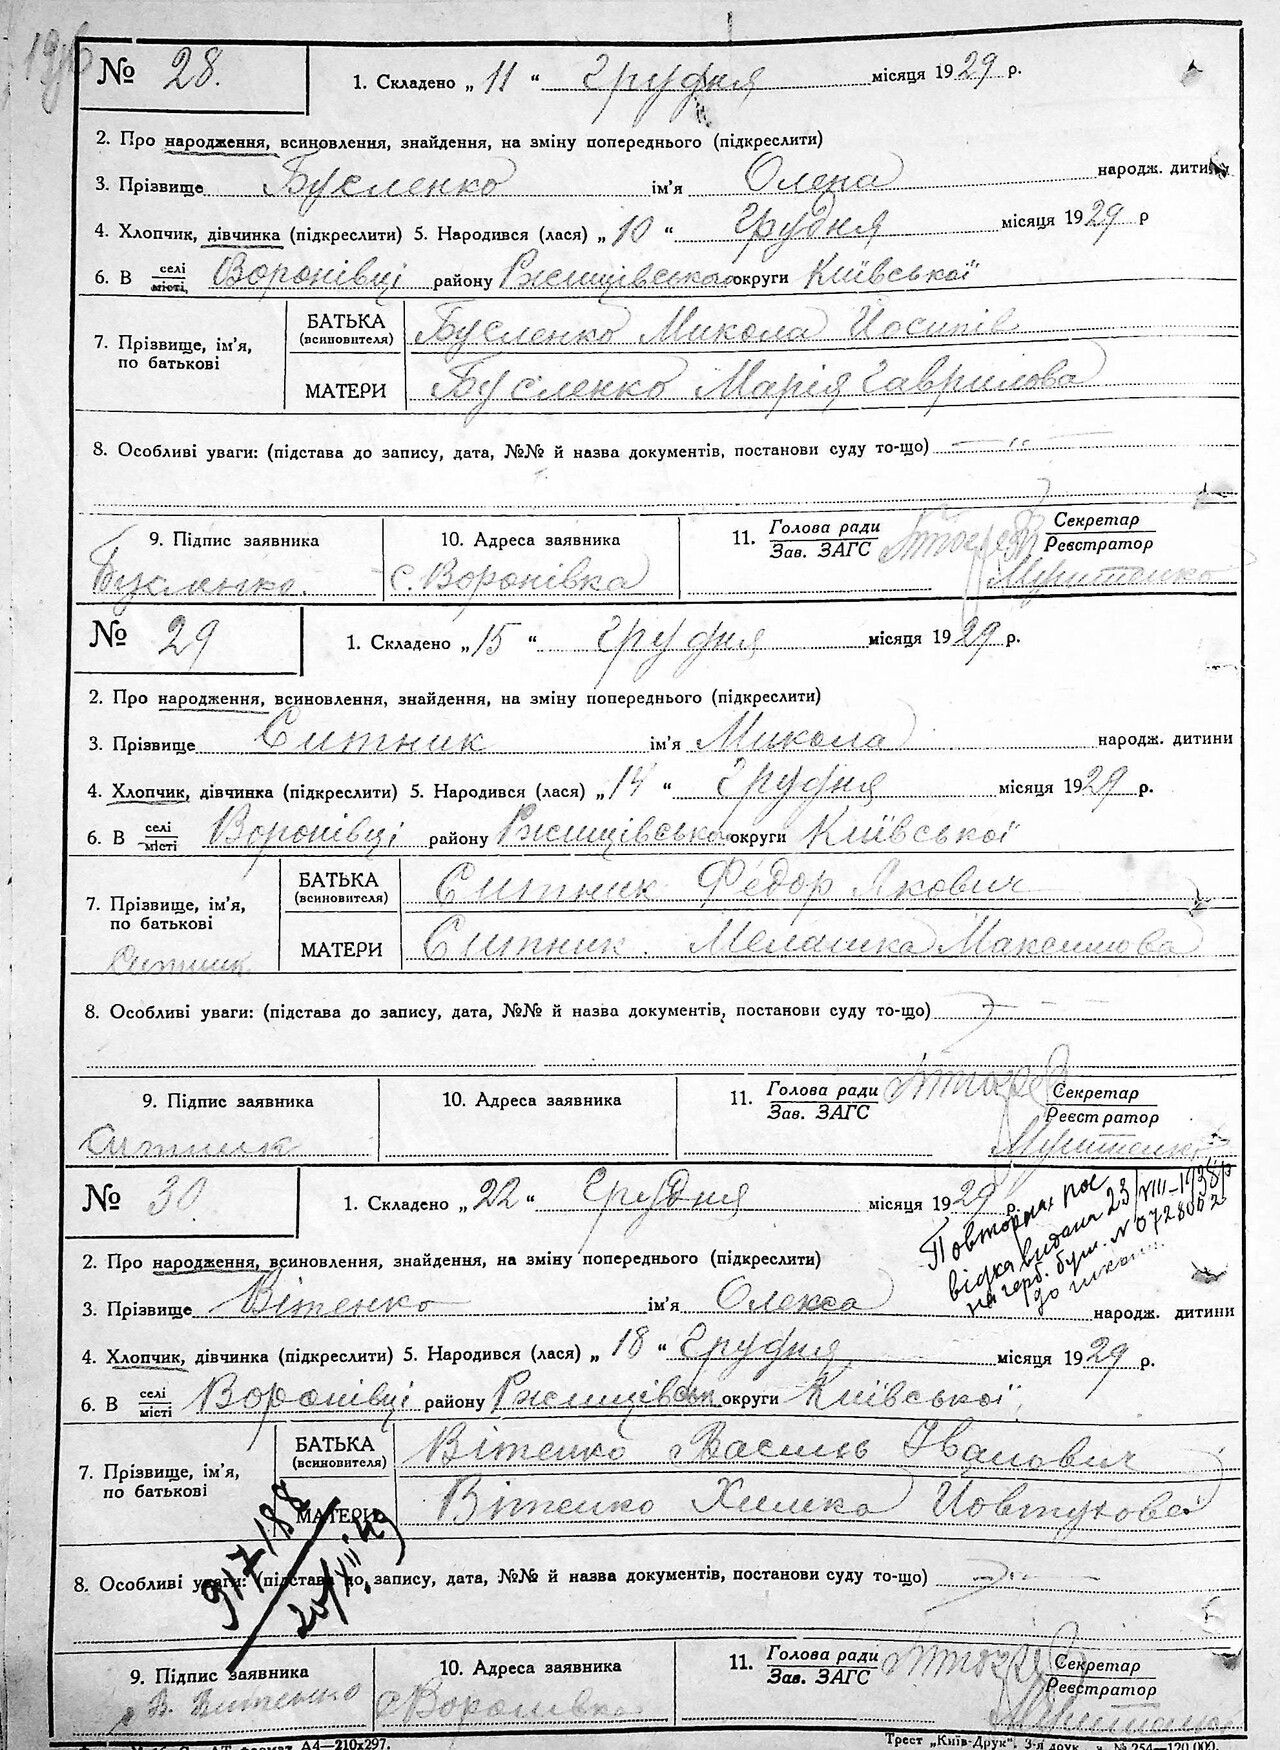 № 28. 1. Складено „ 11 “ Грудня місяця 1929 р.
2. Про народження, всиновлення, знайдення, на зміну попереднього (підкреслити)
3. Прізвище Бусленко ім'я Олена народж. дитини
4. Хлопчик, дівчинка (підкреслити) 5. Народився (лася) „ 10 “ Грудня місяця 1929 р
6. В селі місті, Воронівці району Ржищівська округи Київської
7. Прізвище, ім'я, по батькові
БАТЬКА (всиновителя) Бусленко Микола Йосипів
МАТЕРИ Бусленко Марія Гаврилова
8. Особливі уваги: (підстава до запису, дата, №№ й назва документів, постанови суду то-що)
9. Підпис заявника 10. Адреса заявника 11. Голова ради Зав. ЗАГС Секретар Реєстратор
Бусленко. с. Воронівка
№ 29 1. Складено „ 15 “ Грудня місяця 1929 р.
2. Про народження, всиновлення, знайдення, на зміну попереднього (підкреслити)
3. Прізвище Ситник ім'я Микола народж. дитини
4. Хлопчик, дівчинка (підкреслити) 5. Народився (лася) „ 14 “ Грудня місяця 1929 р.
6. В селі місті Воронівці району Ржищівська округи Київської
7. Прізвище, ім'я, по батькові
БАТЬКА (всиновителя) Ситник Федор Якович
МАТЕРИ Ситник. Мелашка Максимова
Ситник
8. Особливі уваги: (підстава до запису, дата, №№ й назва документів, постанови суду то-що)
9. Підпис заявника 10. Адреса заявника 11. Голова ради Зав. ЗАГС Секретар Реєстратор
Ситник
№ 30 1. Складено „ 22 “ Грудня місяця 1929 р.
Повторна пос
відка видана 23/VIII-1938р
на герб. бум. N 0728002
до
2. Про народження, всиновлення, знайдення, на зміну попереднього (підкреслити)
3. Прізвище Вітенко ім'я Олекса народж. дитини
4. Хлопчик, дівчинка (підкреслити) 5. Народився (лася) „ 18 “ Грудня місяця 1929 р.
6. В селі місті Воронівці району Ржищівськ округи Київської
7. Прізвище, ім'я, по батькові
БАТЬКА (всиновителя) Вітенко Василь Іванович
МАТЕРИ Вітенко Химка Йовтухова
917/88
20/XII 43
8. Особливі уваги: (підстава до запису, дата, №№ й назва документів, постанови суду то-що)
9. Підпис заявника 10. Адреса заявника 11. Голова ради Зав. ЗАГС Секретар Реєстратор
В. Витенко с Воронівка
А4—210х297. Трест „Київ-Друк“. 3-я друк. № 254—120.000.